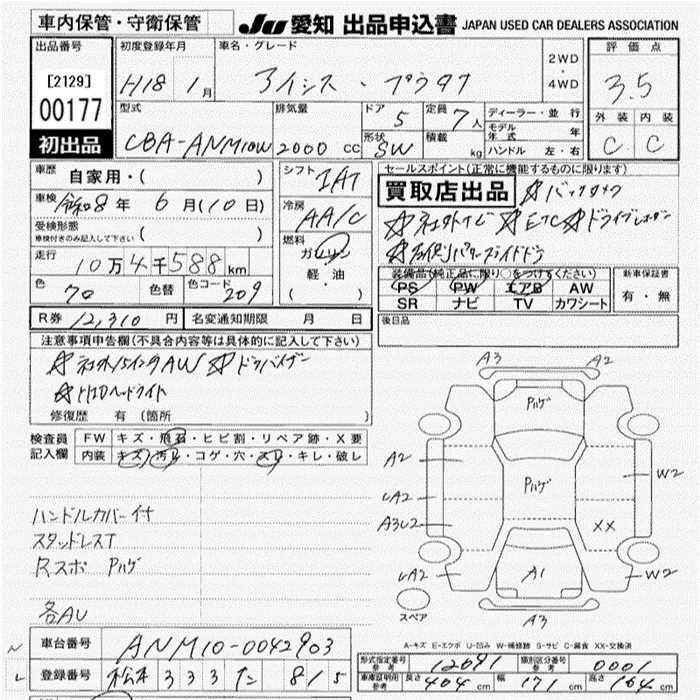 車内保管・守衛保管 JU 愛知 出品申込書 JAPAN USED CAR DEALERS ASSOCIATION
出品番号 初度登録年月 車名・グレード 2WD・4WD 評価点
[2129] H18 1月 アイシス・プラタナ 3.5
00177
型式 排気量 ドア 5 定員 7人 ディーラー・並行 外装 内装
初出品 CBA-ANM10W 2000cc 形状 SW 積載 kg モデル年式 年 C C
ハンドル 左・右
車歴 自家用・( ) シフト IAT セールスポイント(正常に機能するものに限ります)
買取店出品 ☆バックカメラ
車検 令和8年 6月(10日) 冷房 AA/C ☆社外ナビ ☆ETC ☆ドライブレコーダー
受検形態 車検付きのみ記入して下さい ( ) 燃料 ガソリン
走行 10万4千588km 軽・油 装備品(純正品に限り○をつけてください) 新車保証書
PS PW エアB AW 有・無
色 70 色替 色コード 209 ( ・ ) SR ナビ TV カワシート
R券 12,310円 名変通知期限 月 日 後日品
注意事項申告欄(不具合内容等は具体的に記入して下さい)
☆社外15インチAW ☆ドアバイザー
☆HIDヘッドライト
修復歴 有 (箇所 )
検査員記入欄 FW キズ・飛石・ヒビ割・リペア跡・X要
内装 キズ・汚レ・コゲ・穴・スレ・キレ・破レ
A3 A2
Pハゲ
A2
Pハゲ W2
A2
A3U2 XX
A1 W2
A2
スペア A3
ハンドルカバー付
スタッドレスT
Rスポ Pハゲ
各AU
A-キズ E-エクボ U-凹み W-補修跡 S-サビ C-腐食 XX-交換済
車台番号 ANM10-0042903
形式指定番号 参考 12091 類別区分番号 参考 0001
登録番号 松本 333 た 815
車庫証明用 参考 長さ 464cm 幅 171cm 高さ 164cm